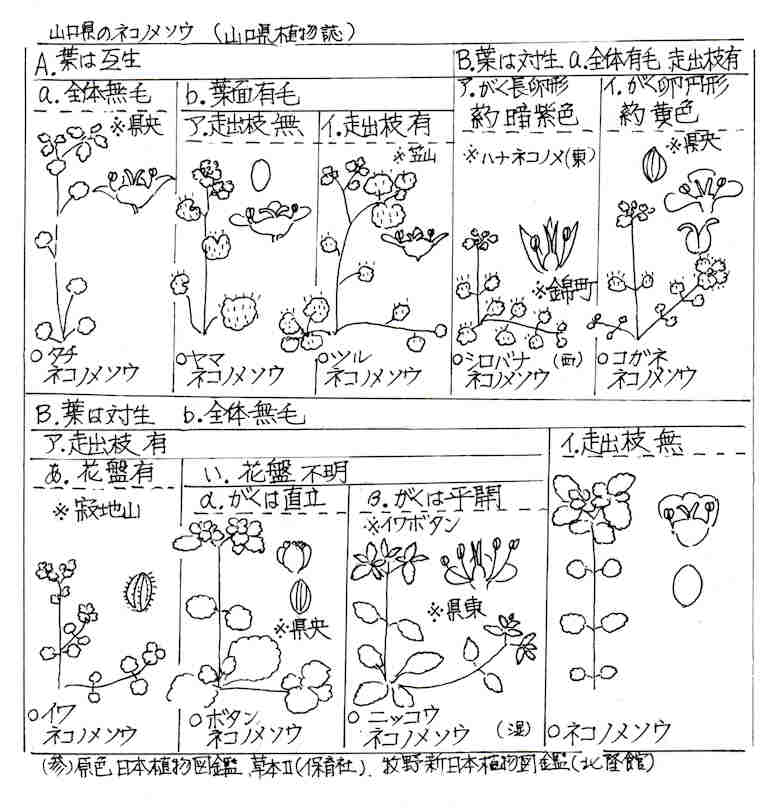 山口県のネコノメソウ (山口県植物誌)
A.葉は互生
B.葉は対生 a.全体有毛 走出枝有
a.全体無毛
b.葉面有毛
ア.がく長卵形
葯 暗紫色
イ.がく卵円形
葯 黄色
※県央
ア.走出枝 無
イ.走出枝 有
※笠山
※ハナネコノメ(東)
※県央
※錦町
○タチ
ネコノメソウ
○ヤマ
ネコノメソウ
○ツル
ネコノメソウ
○シロバナ (西)
ネコノメソウ
○コガネ
ネコノメソウ
B.葉は対生 b.全体無毛
ア.走出枝 有
イ.走出枝 無
あ.花盤有
い.花盤 不明
※寂地山
α.がくは直立
β.がくは平開
※イワボタン
※県央
※県東
○イワ
ネコノメソウ
○ボタン
ネコノメソウ
○ニッコウ
ネコノメソウ (湿)
○ネコノメソウ
(参)原色日本植物図鑑 草本II(保育社)、牧野新日本植物図鑑(北隆館)